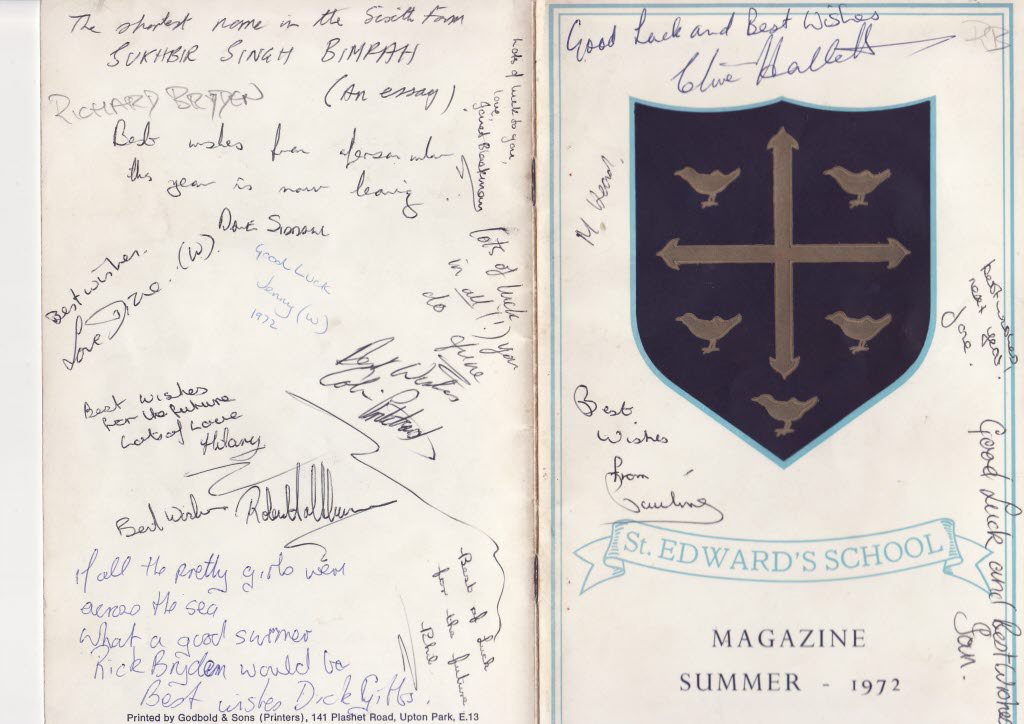 The shortest name in the Sixth Form
SUKHBIR SINGH BIMRAH
(An essay)
RICHARD BRYDEN
Best wishes from a person who
this year is now leaving
Lots of luck to you,
love,
Janet
Best wishes.
Love (W).
Good Luck
Jenny (W)
1972
Lots of luck
in all (!) you
do
Best Wishes
Colin
Best Wishes
For the future
Lots of Love
Hilary
Best Wishes
If all the pretty girls were
across the sea
What a good swimmer
Rick Bryden would be
Best wishes Dick Gibbs.
Best of luck
for the future
Phil
Printed by Godbold & Sons (Printers), 141 Plashet Road, Upton Park, E.13
Good Luck and Best Wishes
Clive Hallett
RB
M.
Best wishes
next year.
Jane.
Best
Wishes
from
Pauline
Good Luck and Best Wishes
St. EDWARD'S SCHOOL
MAGAZINE
SUMMER - 1972